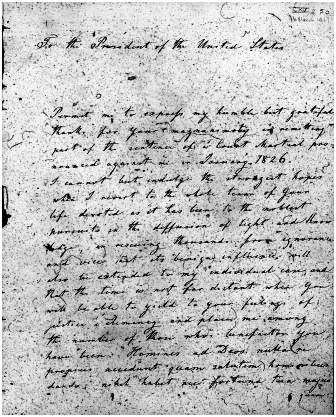 For the President of the United States
Permit me to express my humble but grateful
thanks for your magnanimity in remitting
part of the sentence of a Court Martial pro
nounced against me in January 1826.
I cannot but indulge the strongest hopes
when I revert to the whole tenor of your
life devoted as it has been to the noblest
pursuits in the diffusion of light and Know
ledge, in rescuing thousands from ignorance
and vice that its benign influence will
also be extended to my individual case, and
that the time is not far distant when you
will be able to yield to your feelings of
justice & clemency and place me among
the number of those whose benefactor you
have been. Homines ad Deos nulla re
propius accedunt quam salutem hominibus
dando; nihil habet nec fortuna tua majus